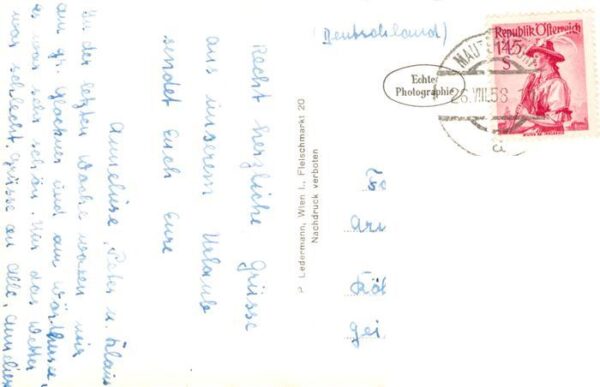 Recht herzliche Grüsse
aus unserem Urlaub
sendet Euch Eure
Anneliese, Peter u. Klaus
In der letzten Woche waren wir
am gr. Glockner und am Wörthersee,
es war sehr schön. Nur das Wetter
war schlecht. Grüsse an Alle, Annelies
P. Ledermann, Wien I., Fleischmarkt 20
Nachdruck verboten
(Deutschland)
Echte
Photographie
Republik Österreich
1.45
S
26.VIII.58